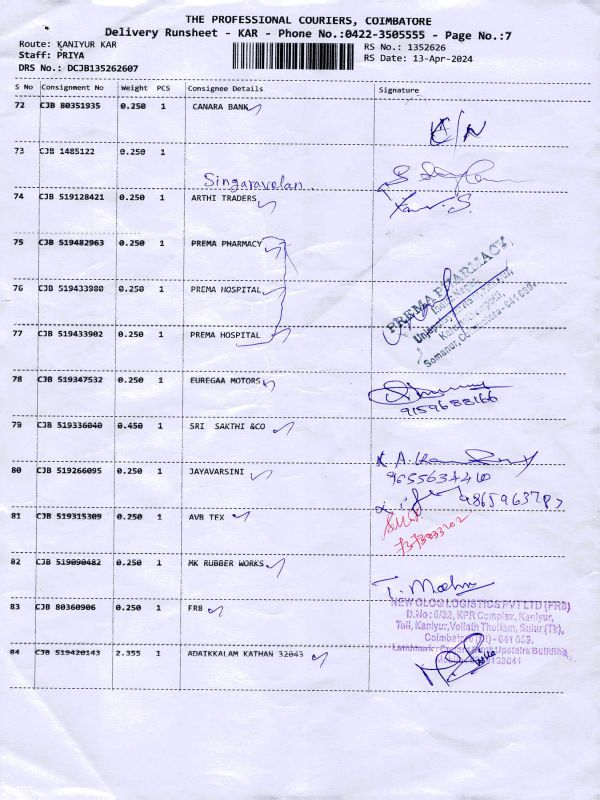 THE PROFESSIONAL COURIERS, COIMBATORE
Delivery Runsheet - KAR - Phone No.:0422-3505555 - Page No.:7
Route: KANIYUR KAR
RS No.: 1352626
Staff: PRIYA
RS Date: 13-Apr-2024
DRS No.: DCJB135262607
S No Consignment No Weight PCS Consignee Details Signature
72 CJB 80351935 0.250 1 CANARA BANK
73 CJB 1485122 0.250 1
Singaravelan
74 CJB 519128421 0.250 1 ARTHI TRADERS
75 CJB 519482963 0.250 1 PREMA PHARMACY
PREMA PHARMACY
76 CJB 519433980 0.250 1 PREMA HOSPITAL
77 CJB 519433902 0.250 1 PREMA HOSPITAL
Somanur, Coimbatore-641
78 CJB 519347532 0.250 1 EUREGAA MOTORS
9159688166
79 CJB 519336040 0.450 1 SRI SAKTHI &CO
K. A.
9655634410
80 CJB 519266095 0.250 1 JAYAVARSINI
81 CJB 519315309 0.250 1 AVB TEX
82 CJB 519090482 0.250 1 MK RUBBER WORKS
T. Mohn
83 CJB 80360906 0.250 1 FR8
NEWOLOG LOGISTICS PVT LTD (FR8)
D.No: 6/32, KPR Complex, Kaniyur,
Toll, Kaniyur, Vollath Thottam, Sulur (Tk),
Coimbatore (Dt) - 641 663.
84 CJB 519420143 2.355 1 ADAIKKALAM KATHAN 32043
Landmark: Canara Bank Upstairs Building,